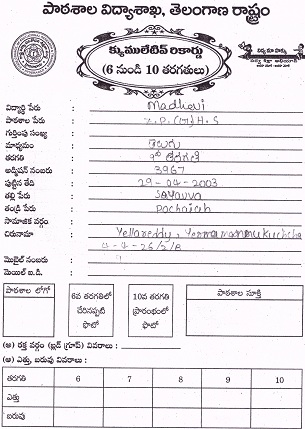 పాఠశాల విద్యాశాఖ, తెలంగాణ రాష్ట్రం
క్యుములేటివ్ రికార్డు
(6 నుండి 10 తరగతులు)
విద్యార్థి పేరు : Madhevi
పాఠశాల పేరు : Z.P. H.S
గుర్తింపు సంఖ్య :
మాధ్యమం : తెలుగు
తరగతి : తరగతి
అడ్మిషన్ నంబరు : 3967
పుట్టిన తేది : 29-04-2003
తల్లి పేరు : Sayavva
తండ్రి పేరు : Pochaiah
సామాజిక వర్గం :
చిరునామా : Yellareddy,
4-4-26/2/A
మొబైల్ నంబరు :
మెయిల్ ఐ.డి. :
పాఠశాల లోగో
6వ తరగతిలో చేరినప్పటి ఫొటో
10వ తరగతి ప్రారంభంలో ఫొటో
పాఠశాల సూక్తి
(అ) రక్త వర్గం (బ్లడ్ గ్రూప్) వివరాలు :
(ఆ) ఎత్తు, బరువు వివరాలు :
తరగతి 6 7 8 9 10
ఎత్తు
బరువు